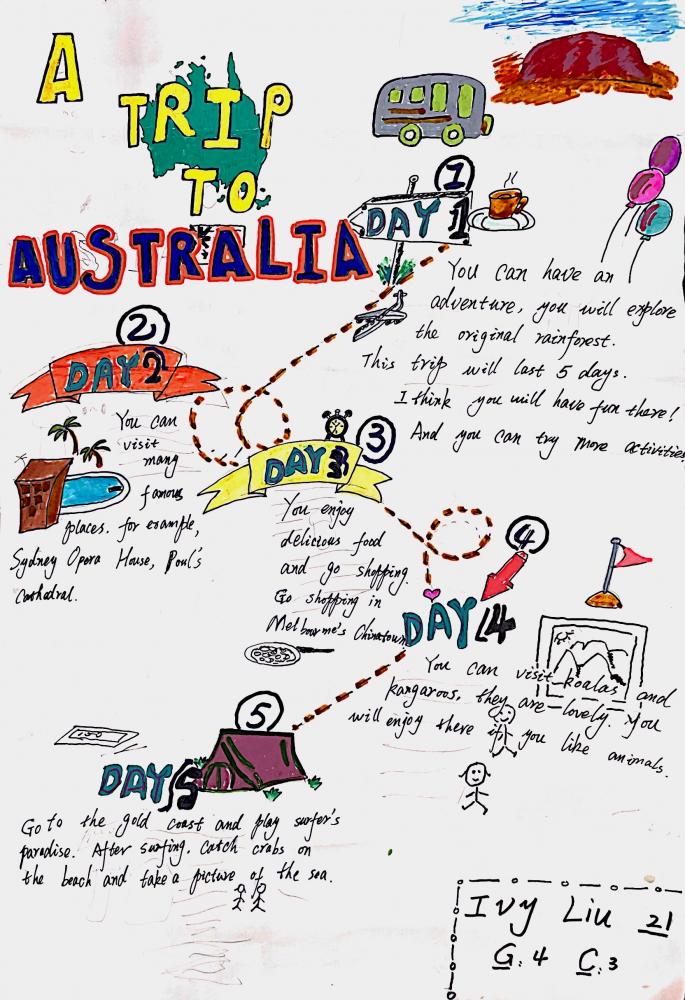 A
TRIP
TO
AUSTRALIA
1
DAY 1
You can have an
adventure, you will explore
the original rainforest.
This trip will last 5 days.
I think you will have fun there!
And you can try more activities
2
DAY 2
You can
visit
many
famous
places. for example,
Sydney Opera House, Poul's
Cathedral.
3
DAY 3
You enjoy
delicious food
and go shopping.
Go shopping in
Melbourne's Chinatown
4
DAY 4
You can visit koalas and
kangaroos, they are lovely. You
will enjoy there if you like animals.
5
DAY 5
Go to the gold coast and play surfer's
paradise. After surfing, catch crabs on
the beach and take a picture of the sea.
Ivy Liu 21
G: 4 C: 3